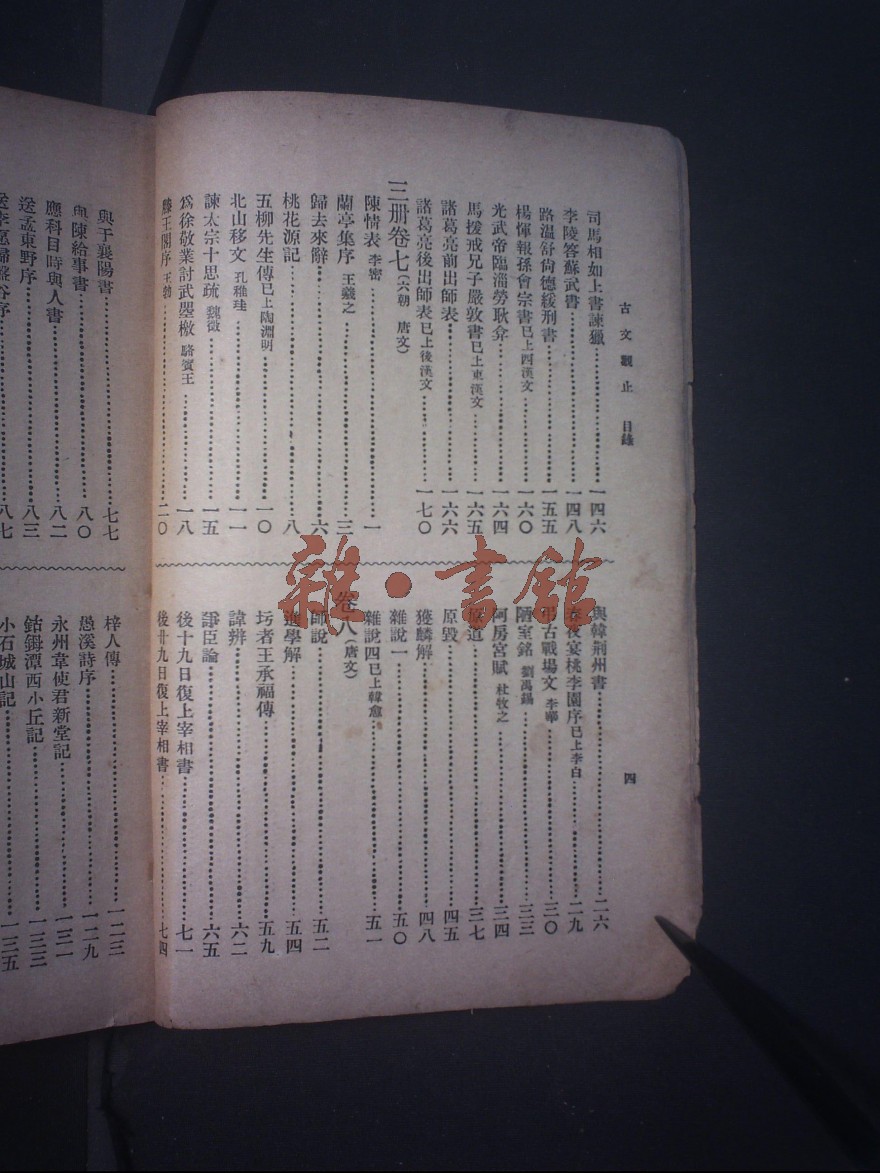 古文觀止 目錄
四
司馬相如上書諫獵 一四六
李陵答蘇武書 一四八
路温舒尙德緩刑書 一五五
楊惲報孫會宗書已上西漢文 一六〇
光武帝臨淄勞耿弇 一六四
馬援戒兄子嚴敦書已上東漢文 一六五
諸葛亮前出師表 一六六
諸葛亮後出師表已上後漢文 一七〇
三册卷七(六朝 唐文)
陳情表 李密 一
蘭亭集序 王羲之 三
歸去來辭 六
桃花源記 八
五柳先生傳已上陶淵明 一〇
北山移文 孔稚珪 一一
諫太宗十思疏 魏徵 一五
爲徐敬業討武曌檄 駱賓王 一八
滕王閣序 王勃 二〇
與韓荊州書 二六
春夜宴桃李園序已上李白 二九
弔古戰場文 李華 三〇
陋室銘 劉禹錫 三三
阿房宮賦 杜牧之 三四
原道 三七
原毀 四五
獲麟解 四八
雜說一 五〇
雜說四已上韓愈 五一
卷八(唐文)
師說 五二
進學解 五四
圬者王承福傳 五九
諱辨 六二
諍臣論 六五
後十九日復上宰相書 七一
後廿九日復上宰相書 七四
與于襄陽書 七七
與陳給事書 八〇
應科目時與人書 八二
送孟東野序 八三
送李愿歸盤谷序 八七
梓人傳 一二三
愚溪詩序 一二九
永州韋使君新堂記 一三一
鈷鉧潭西小丘記 一三三
小石城山記 一三五
雜·書館